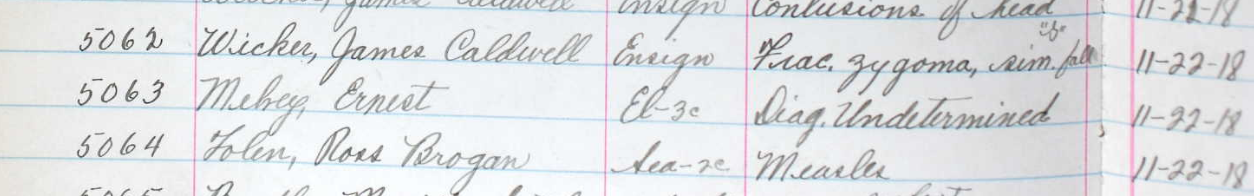 Ensign Contusions of head 11-22-18
5062 Wicker, James Caldwell Ensign Frac. zygoma, sim. fall 11-22-18
5063 Ernest El-3c Diag. Undetermined 11-22-18
5064 Folen, Ross Brogan Sea-2c Measles 11-22-18